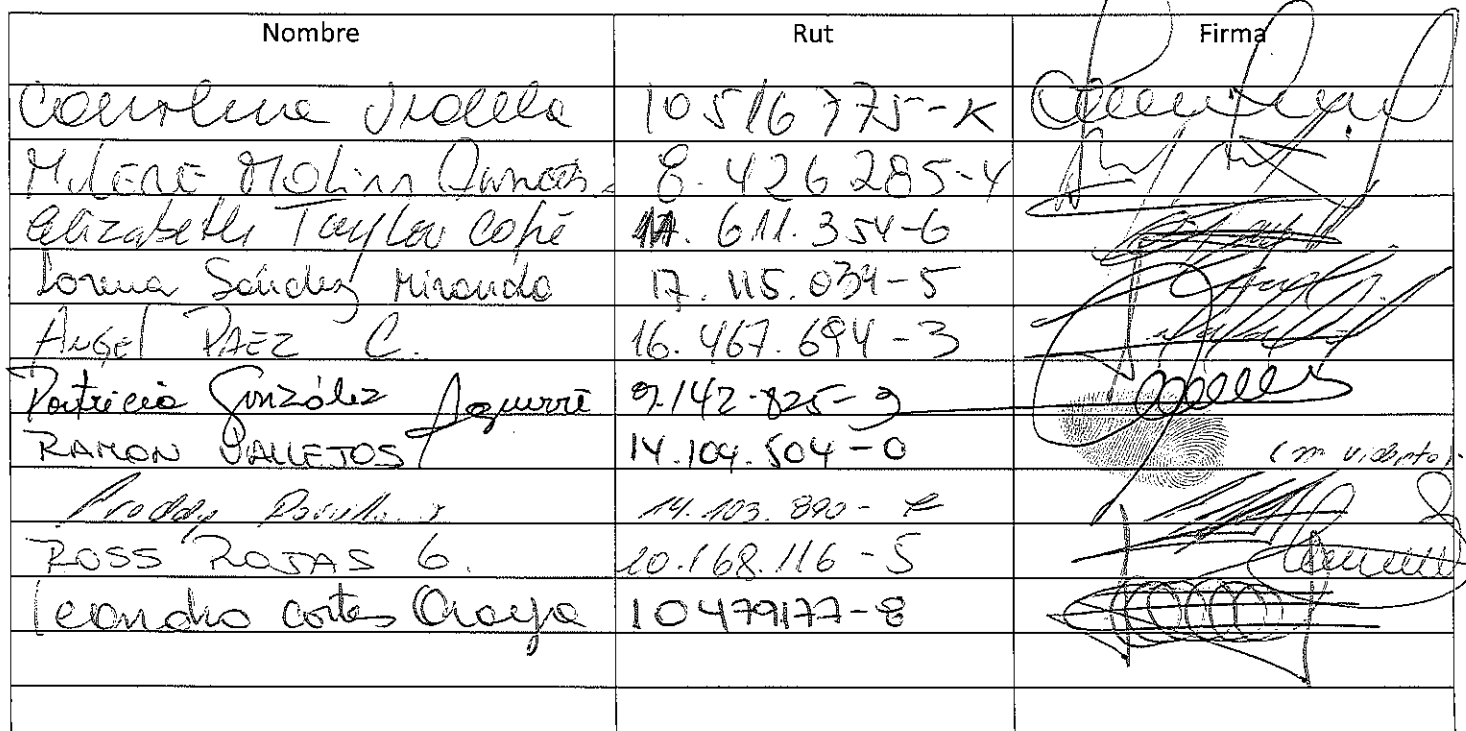 Nombre Rut Firma
Carolina Videla 10516775-K
Milene Molina 8.426.285-4
Elizabeth Taylor Copé 611.354-6
Lorena Sánchez Miranda 17.115.039-5
Angel PAEZ C. 16.467.694-3
Patricia González Aguirre 9.142.825-9
RAMON VALLEJOS 14.104.504-0
Freddy 14.103.890-
ROSS ROJAS G. 10.168.116-5
Leandro Cortes Araya 10479177-8